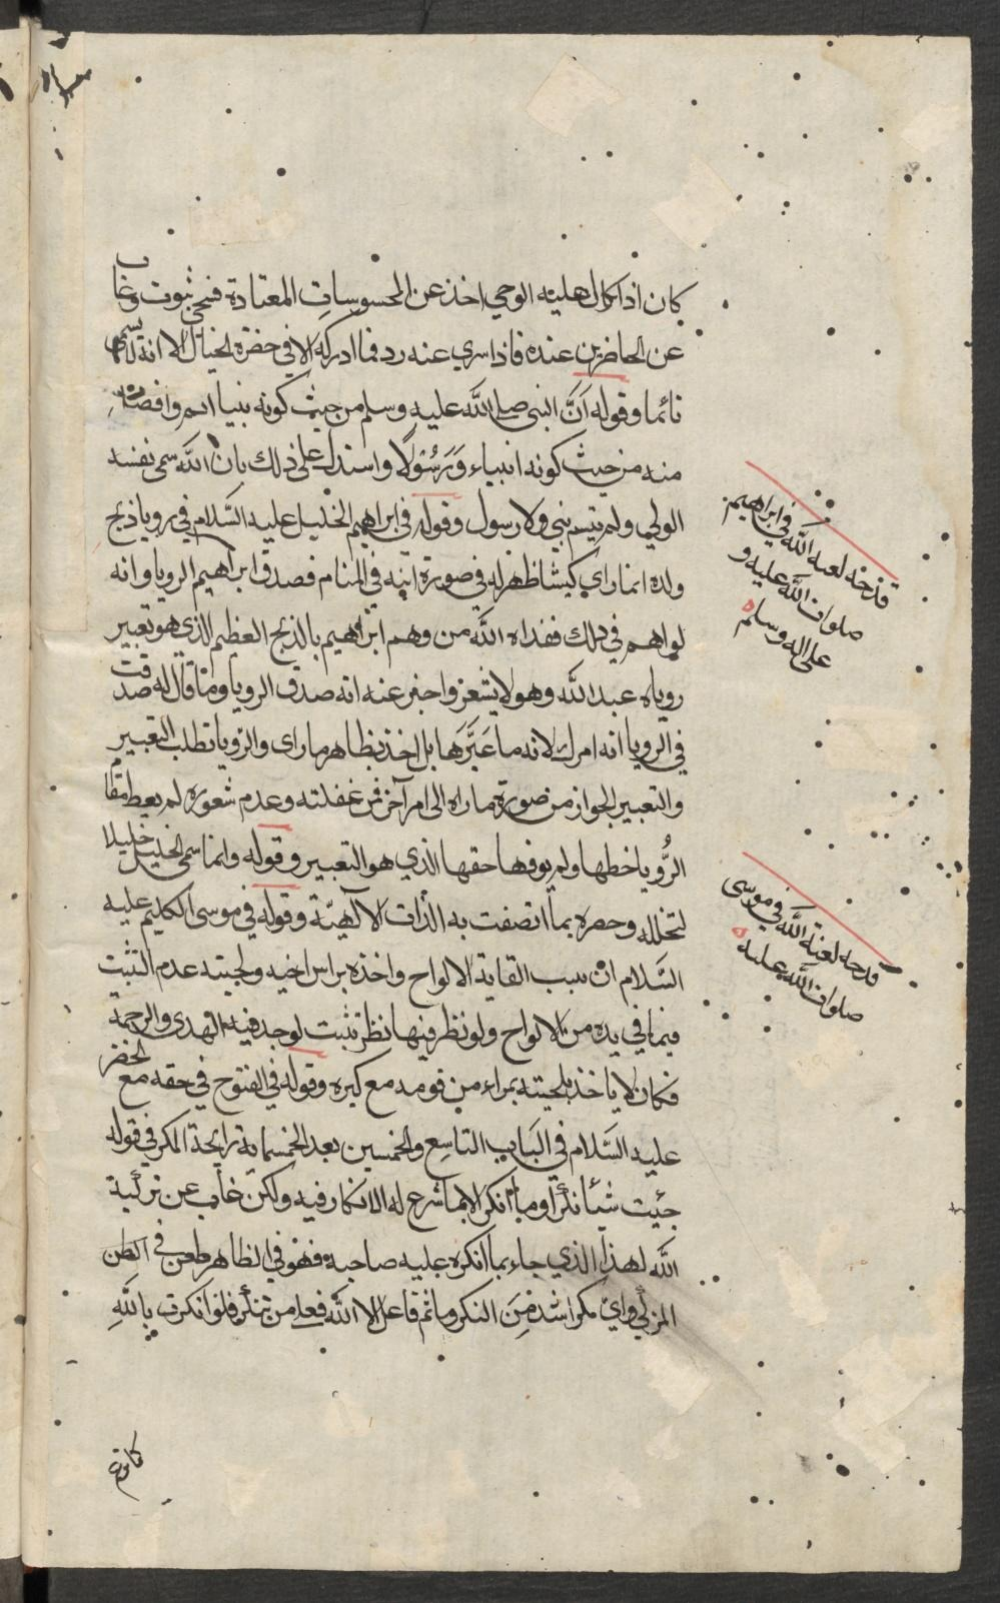 كان اذا كال هليته الوحي اخذ عن المحسوسات المعتادة فنحى بثوب وغاب
عن الحاضرين عنده فاذا سري عنه رد فما ادركه الا في حضرة الخيال الا انه لا يسمى
نائما وقوله ان النبى صلى الله عليه وسلم من حيث كونه نبيا اتم وافضل
منه من حيث كونه انبياء وَرَسُولًا واستدل على ذلك بان الله سمى نفسه
الولي ولم يتسم بنبي ولا رسول وقوله في ابراهيم الخليل عليه السَّلام في رويا ذبح
ولده انما راي كبشا ظهر له في صورة ابنه في المنام فصدق ابراهيم الرويا وانه
لم واهم في ذلك ففداه الله من وهم ابراهيم بالذبح العظيم الذي هو تعبير
روياه عبد الله وهو لا يشعر واخبر عنه انه صدق الرويا وما قال له صدقت
في الرويا انه امرك لانه ما عَبَّرَها بل اخذ بظاهر ما راى والرويا تطلب التعبير
والتعبير الجواز من صورة ما راه الى امر آخر فمن غفلته وعدم شعوره لم يعط مقام
الرُّويا خطها ولم يوفها حقها الذي هو التعبير وقوله وانما سمى الخليل خليلا
لتخلله وحصره بما اتصفت به الذات الالهيّة وقوله في موسى الكليم عليه
السَّلام ان سبب القاية الالواح واخذه براس اخيه ولحيته عدم التثبت
فيما في يده من الالواح ولو نظر فيها نظر تثبت لوجد فيه الهدى والرحمة
فكان لا ياخذ بلحيته بمراء من قومه مع كبره وقوله في الفتوح في حقه مع الخضر
عليه السَّلام في البَاب التاسع والخمسين بعد الخمسماية رايحة المكر في قوله
جيت شيأ نكرًا وما انكر الا بما شرع له الانكار فيه ولكن غاب عن تزكية
الله لهذا الذي جاء بما انكره عليه صاحبه فهو في الظاهر طعن في الطن
المزكي واي مكر اشد من النكر وما ثم فاعل الا الله فعلى من تنكر فلو انكرت بِاللَّهِ
قدحه لعنه الله في ابراهيم
صلوات الله عليه و
على اله وسلم
قدحه لعنة الله في موسى
صلوات الله عليه